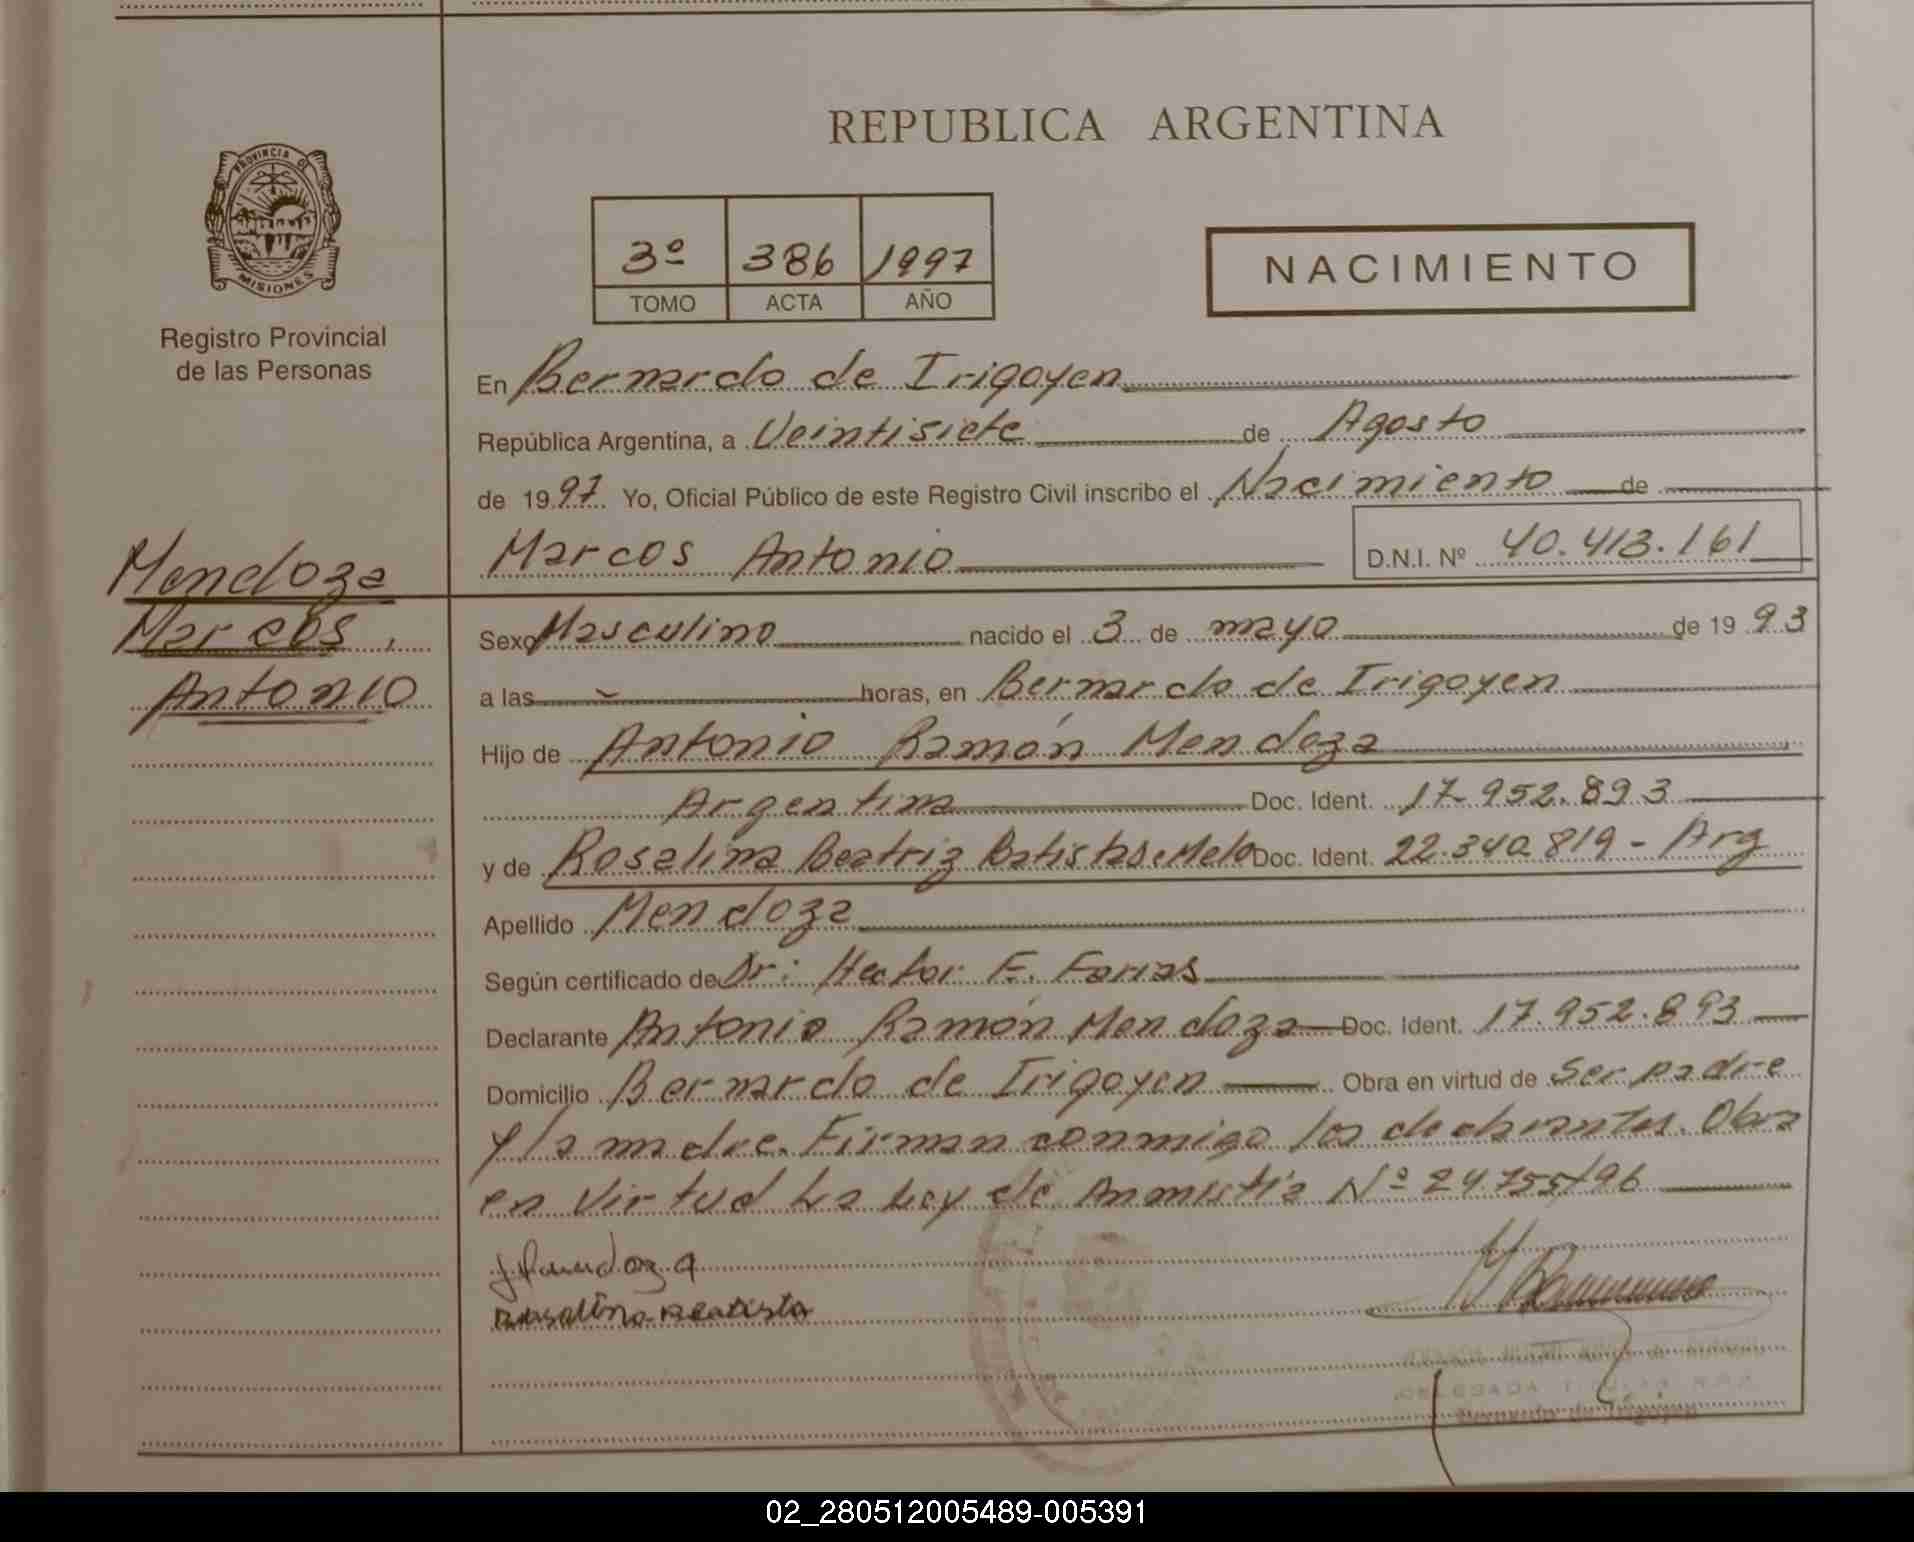 PROVINCIA DE
MISIONES
Registro Provincial
de las Personas
Mendoza
Marcos,
Antonio
REPUBLICA ARGENTINA
3º 386 1997
TOMO ACTA AÑO
NACIMIENTO
En Bernardo de Irigoyen
República Argentina, a Veintisiete de Agosto
de 1997. Yo, Oficial Público de este Registro Civil inscribo el Nacimiento de
Marcos Antonio D.N.I. Nº 40.413.161
Sexo Masculino nacido el 3 de mayo de 1993
a las horas, en Bernardo de Irigoyen
Hijo de Antonio Ramón Mendoza
Argentina Doc. Ident. 17.952.893
y de Rosalina Beatriz Batista de Melo Doc. Ident. 22.340.819 - Arg
Apellido Mendoza
Según certificado de Dr: Hector F. Farias
Declarante Antonio Ramón Mendoza Doc. Ident. 17.952.893
Domicilio Bernardo de Irigoyen Obra en virtud de ser padre
y la madre. Firman conmigo los declarantes. Obra
en virtud La Ley de Amnistia Nº 24.755/96
Mendoza
Rosalina Beatista
Bernardo de Irigoyen
02_280512005489-005391